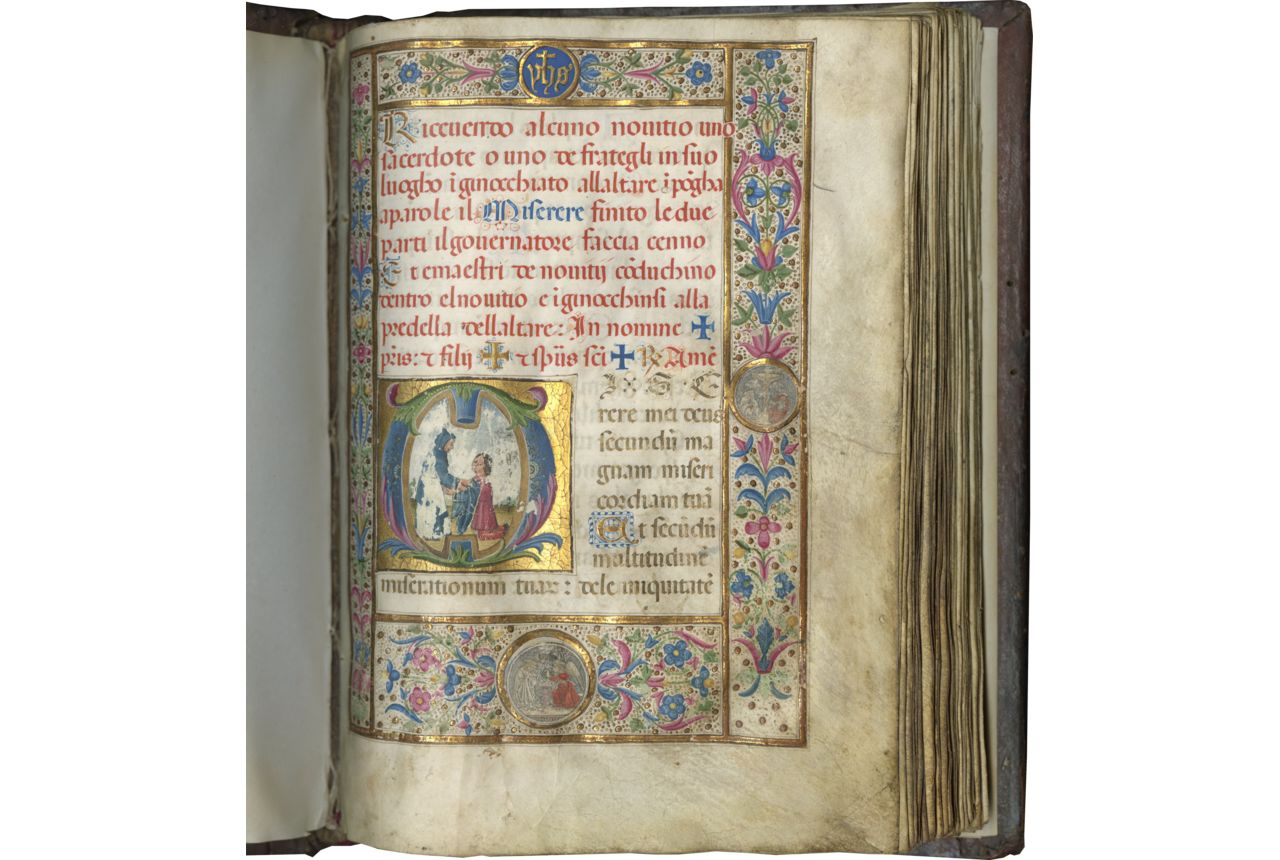 yhs
Riceuendo alcuno nouitio uno
sacerdote o uno de frategli in suo
luogho ĩginocchiato allaltare ĩpõgha
aparole il Miserere finito le due
parti il gouernatore faccia cenno
Et emaestri de nouitij cõduchino
dentro el nouitio e ĩginocchinsi alla
predella dellaltare: In nomine ✠
p̃ris: ⁊ filij ✠ ⁊ sp̃us sc̃i ✠ ℟ Amẽ
MISE
rere mei deus
secundũ ma
gnam miseri
cordiam tuã
Et secũdũ
multitudinẽ
miserationum tuaꝝ: dele iniquitatẽ